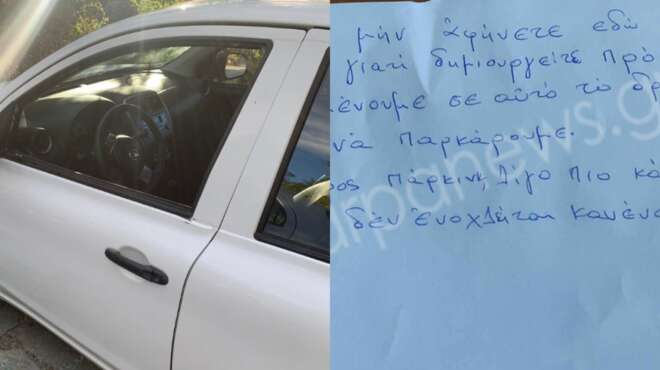 μήν ἀφήνετε ἐδώ
γιατί δημιουργείτε πρό
ένουμε σε αὐτό το δρ
νά παρκάρουμε.
ρος πάρκινγ, λιγο πιο κά
δέν ἐνοχλήται κανένα
arpanews.g